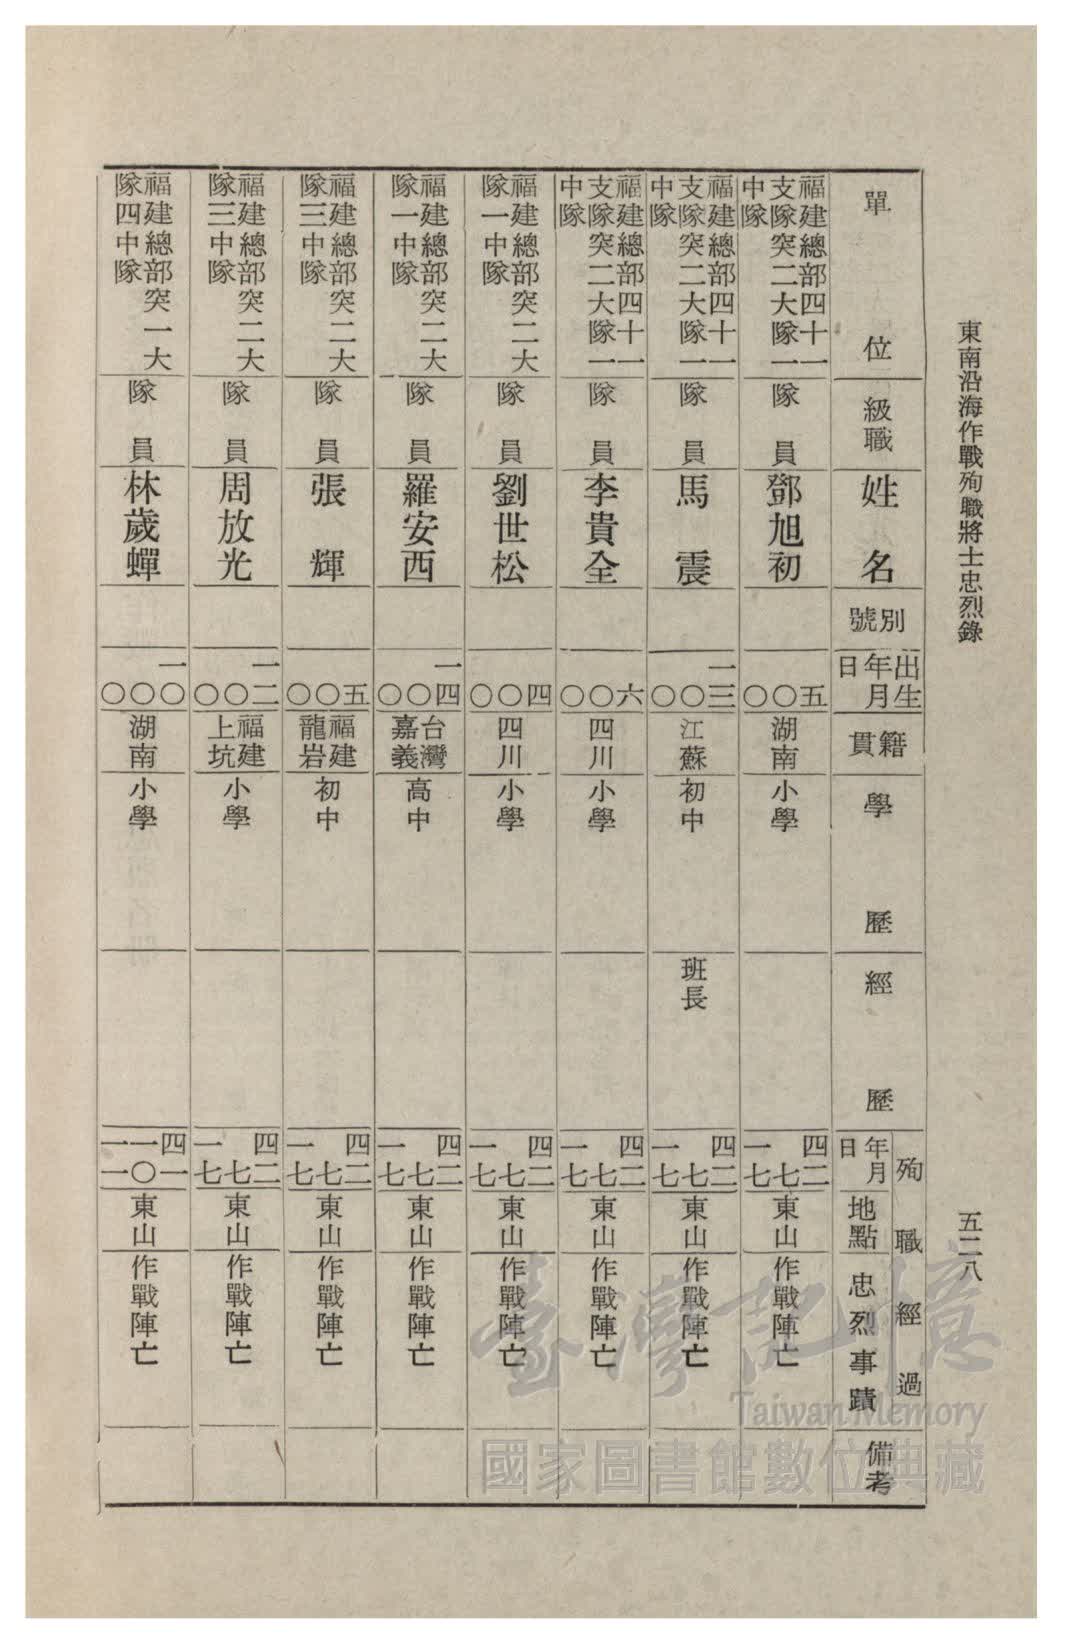 東南沿海作戰殉職將士忠烈錄
五二八
單位
級職
姓名
別號
出生
年月
日
籍貫
學歷
經歷
殉職經過
年月
日
地點
忠烈事蹟
備考
福建總部四十一
支隊突二大隊一
中隊
隊員
鄧旭初
五
〇
〇
湖南
小學
四二
七
一七
東山
作戰陣亡
福建總部四十一
支隊突二大隊一
中隊
隊員
馬震
一三
〇
〇
江蘇
初中
班長
四二
七
一七
東山
作戰陣亡
福建總部四十一
支隊突二大隊一
中隊
隊員
李貴全
六
〇
〇
四川
小學
四二
七
一七
東山
作戰陣亡
福建總部突二大
隊一中隊
隊員
劉世松
四
〇
〇
四川
小學
四二
七
一七
東山
作戰陣亡
福建總部突二大
隊一中隊
隊員
羅安西
一四
〇
〇
台灣
嘉義
高中
四二
七
一七
東山
作戰陣亡
福建總部突二大
隊三中隊
隊員
張輝
五
〇
〇
福建
龍岩
初中
四二
七
一七
東山
作戰陣亡
福建總部突二大
隊三中隊
隊員
周放光
一二
〇
〇
福建
上坑
小學
四二
七
一七
東山
作戰陣亡
福建總部突一大
隊四中隊
隊員
林歲蟬
一〇
〇
〇
湖南
小學
四一
一〇
一一
東山
作戰陣亡
臺灣記憶
Taiwan Memory
國家圖書館數位典藏